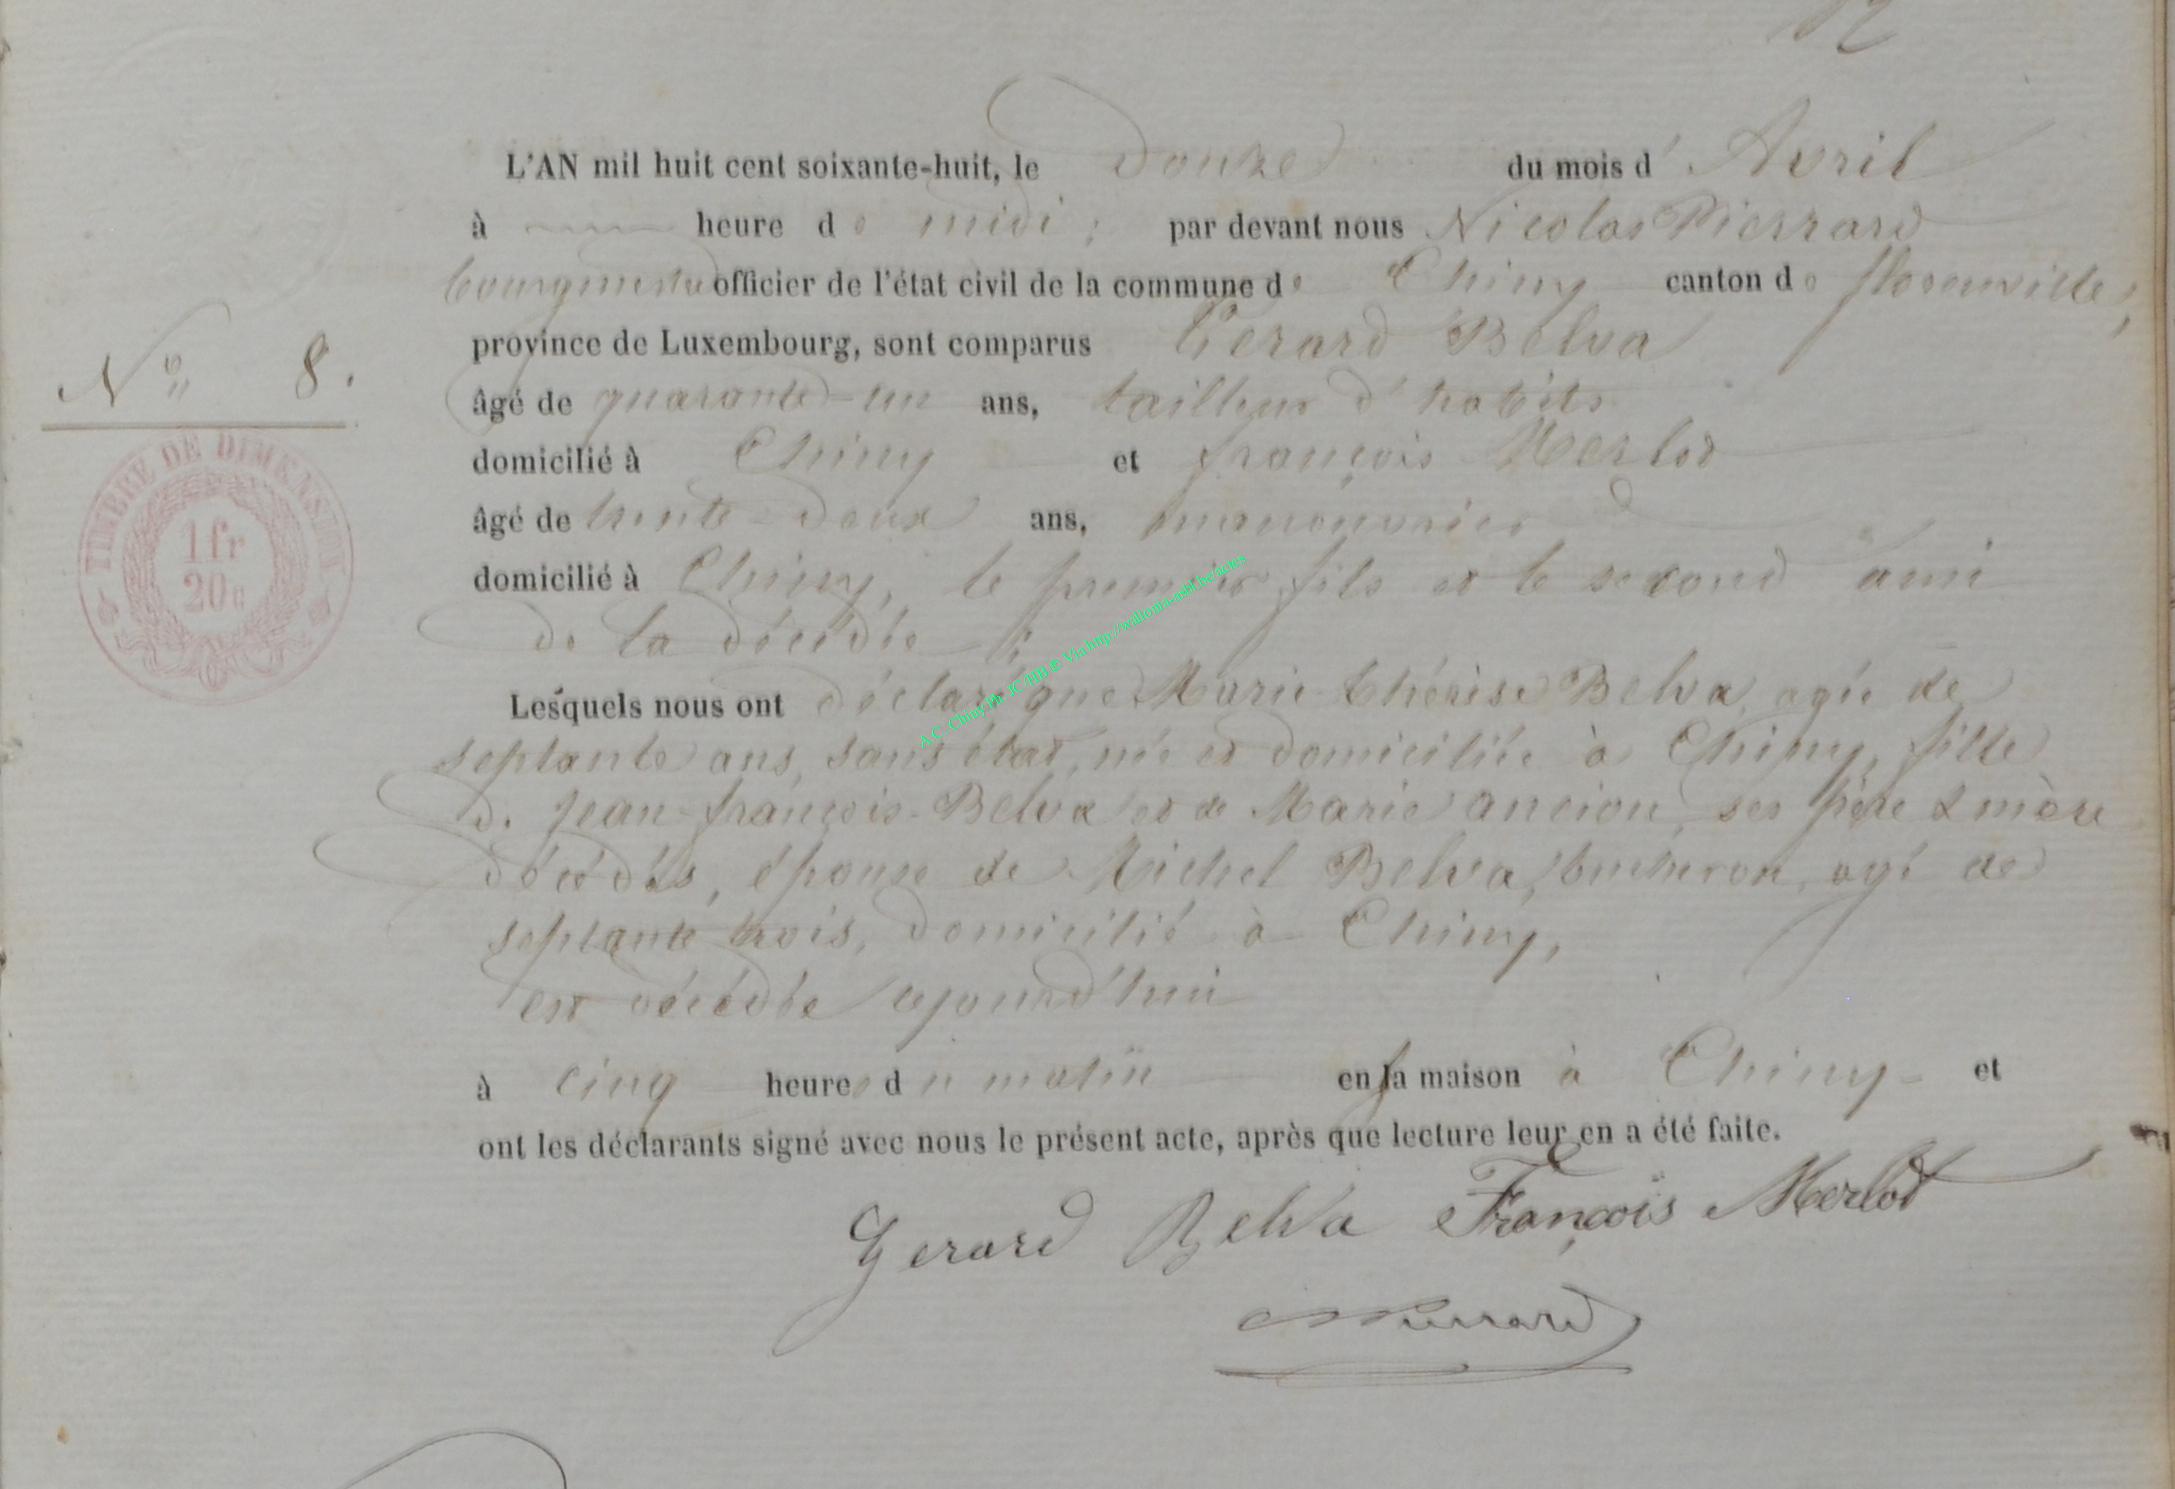 12
L'AN mil huit cent soixante-huit, le douze du mois d'Avril
à heure de midi, par devant nous Nicolas Pierrard
bourgmestre officier de l'état civil de la commune de Chiny canton de florenville,
province de Luxembourg, sont comparus Gerard Belva
N° 8.
âgé de quarante-un ans, tailleur d'habits
domicilié à Chiny et françois Merlot
âgé de trente-deux ans, manouvrier
domicilié à Chiny, le premier fils et le second ami
de la décédée ;
Lesquels nous ont déclaré que Marie Thérèse Belva, agée de
septante ans, sans état, née et domiciliée à Chiny, fille
de Jean-françois-Belva et de Marie ancion, ses père & mère
décédés, épouse de Michel Belva, bucheron, agé de
septante trois, domicilié à Chiny,
est décédée cejourd'hui
à cinq heures du matin en sa maison à Chiny - et
ont les déclarants signé avec nous le présent acte, après que lecture leur en a été faite.
Gerard Belva François Merlot
NPierrard
TIMBRE DE DIMENSION
1 fr
20 c
A.C. Chiny Ph JC HB © Via http://wallonia-asbl.be/actes